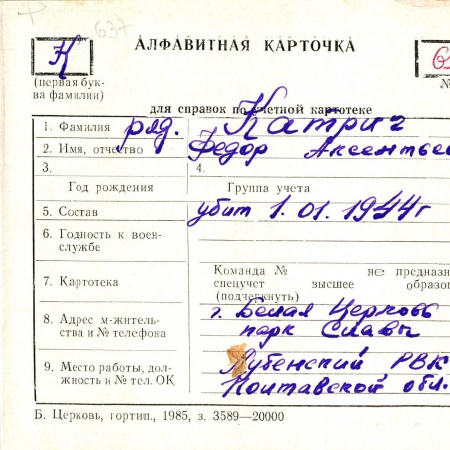 637
АЛФАВИТНАЯ КАРТОЧКА
К
(первая бук-
ва фамилии)
№
для справок по учетной картотеке
1. Фамилия ряд. Катрич
2. Имя, отчество Федор Аксентьев
3.
4.
Год рождения
Группа учета
5. Состав убит 1.01.1944г
6. Годность к воен-
службе
Команда № не предназн
7. Картотека спецучет высшее образо
(подчеркнуть)
8. Адрес м-житель-
ства и № телефона
г. Белая Церковь
парк Славы
9. Место работы, дол-
жность и № тел. ОК
Лубенский РВК
Полтавской обл.
Б. Церковь, гортип., 1985, з. 3589—20000